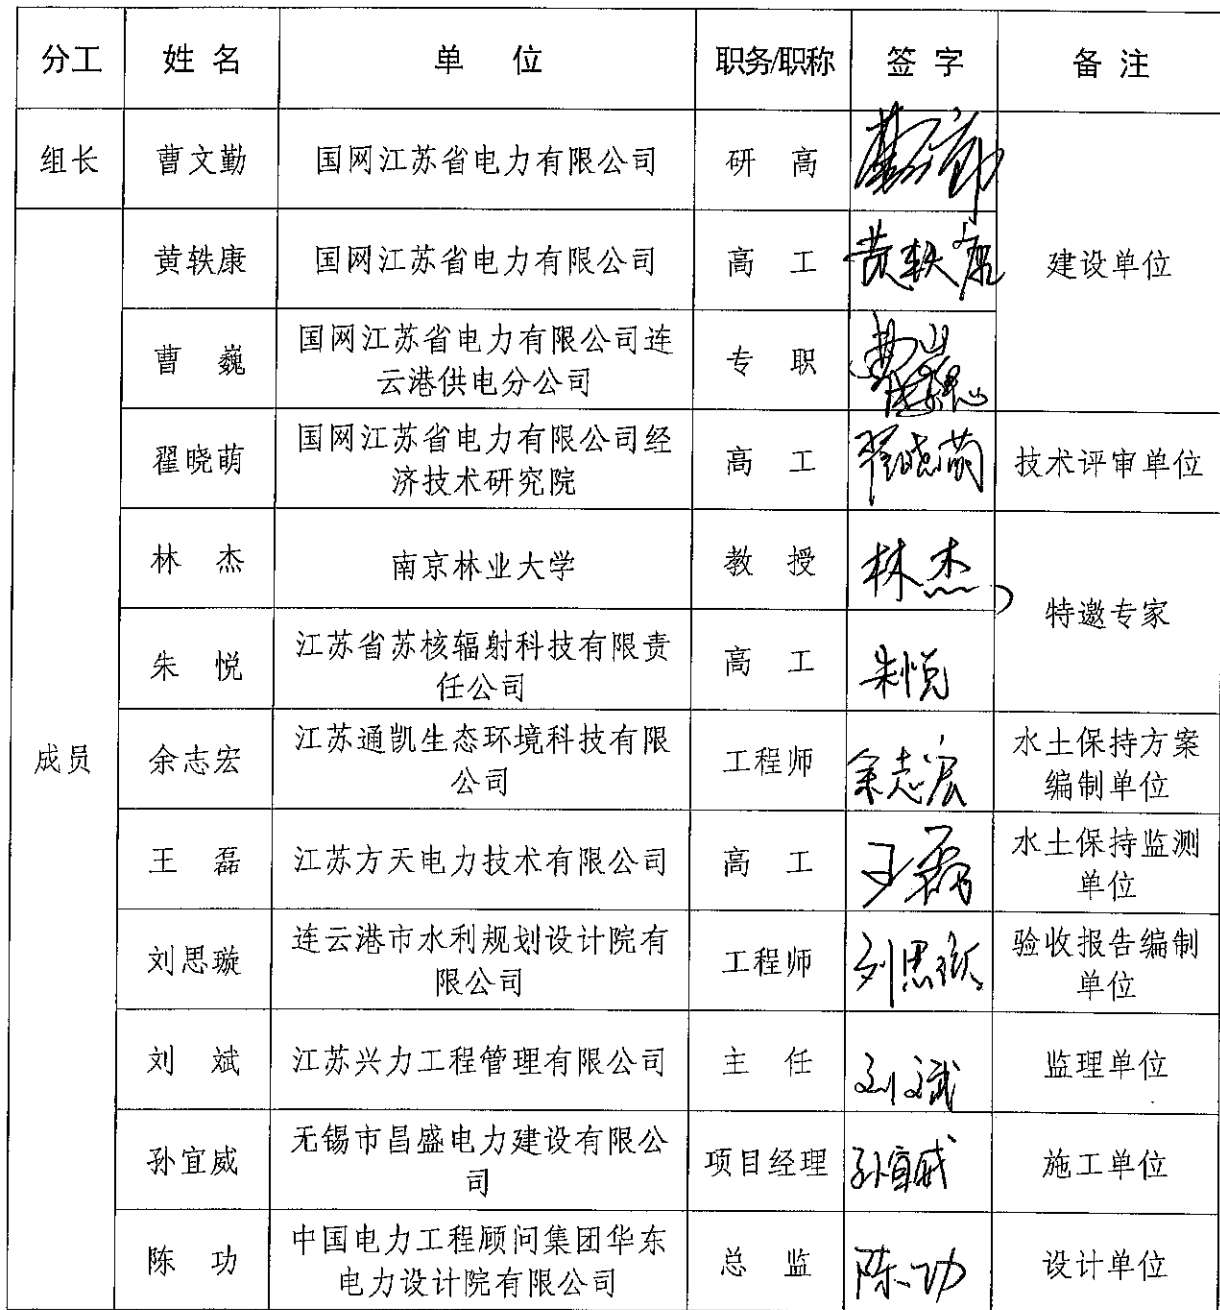 分工 姓名 单位 职务/职称 签字 备注
组长 曹文勤 国网江苏省电力有限公司 研高
黄轶康 国网江苏省电力有限公司 高工 黄轶康 建设单位
曹巍 国网江苏省电力有限公司连
云港供电分公司 专职 曹巍
翟晓萌 国网江苏省电力有限公司经
济技术研究院 高工 翟晓萌 技术评审单位
林杰 南京林业大学 教授 林杰
特邀专家
朱悦 江苏省苏核辐射科技有限责
任公司 高工 朱悦
成员 余志宏 江苏通凯生态环境科技有限
公司 工程师 余志宏 水土保持方案
编制单位
王磊 江苏方天电力技术有限公司 高工 王磊 水土保持监测
单位
刘思璇 连云港市水利规划设计院有
限公司 工程师 刘思璇 验收报告编制
单位
刘斌 江苏兴力工程管理有限公司 主任 刘斌 监理单位
孙宜威 无锡市昌盛电力建设有限公
司 项目经理 孙宜威 施工单位
陈功 中国电力工程顾问集团华东
电力设计院有限公司 总监 陈功 设计单位